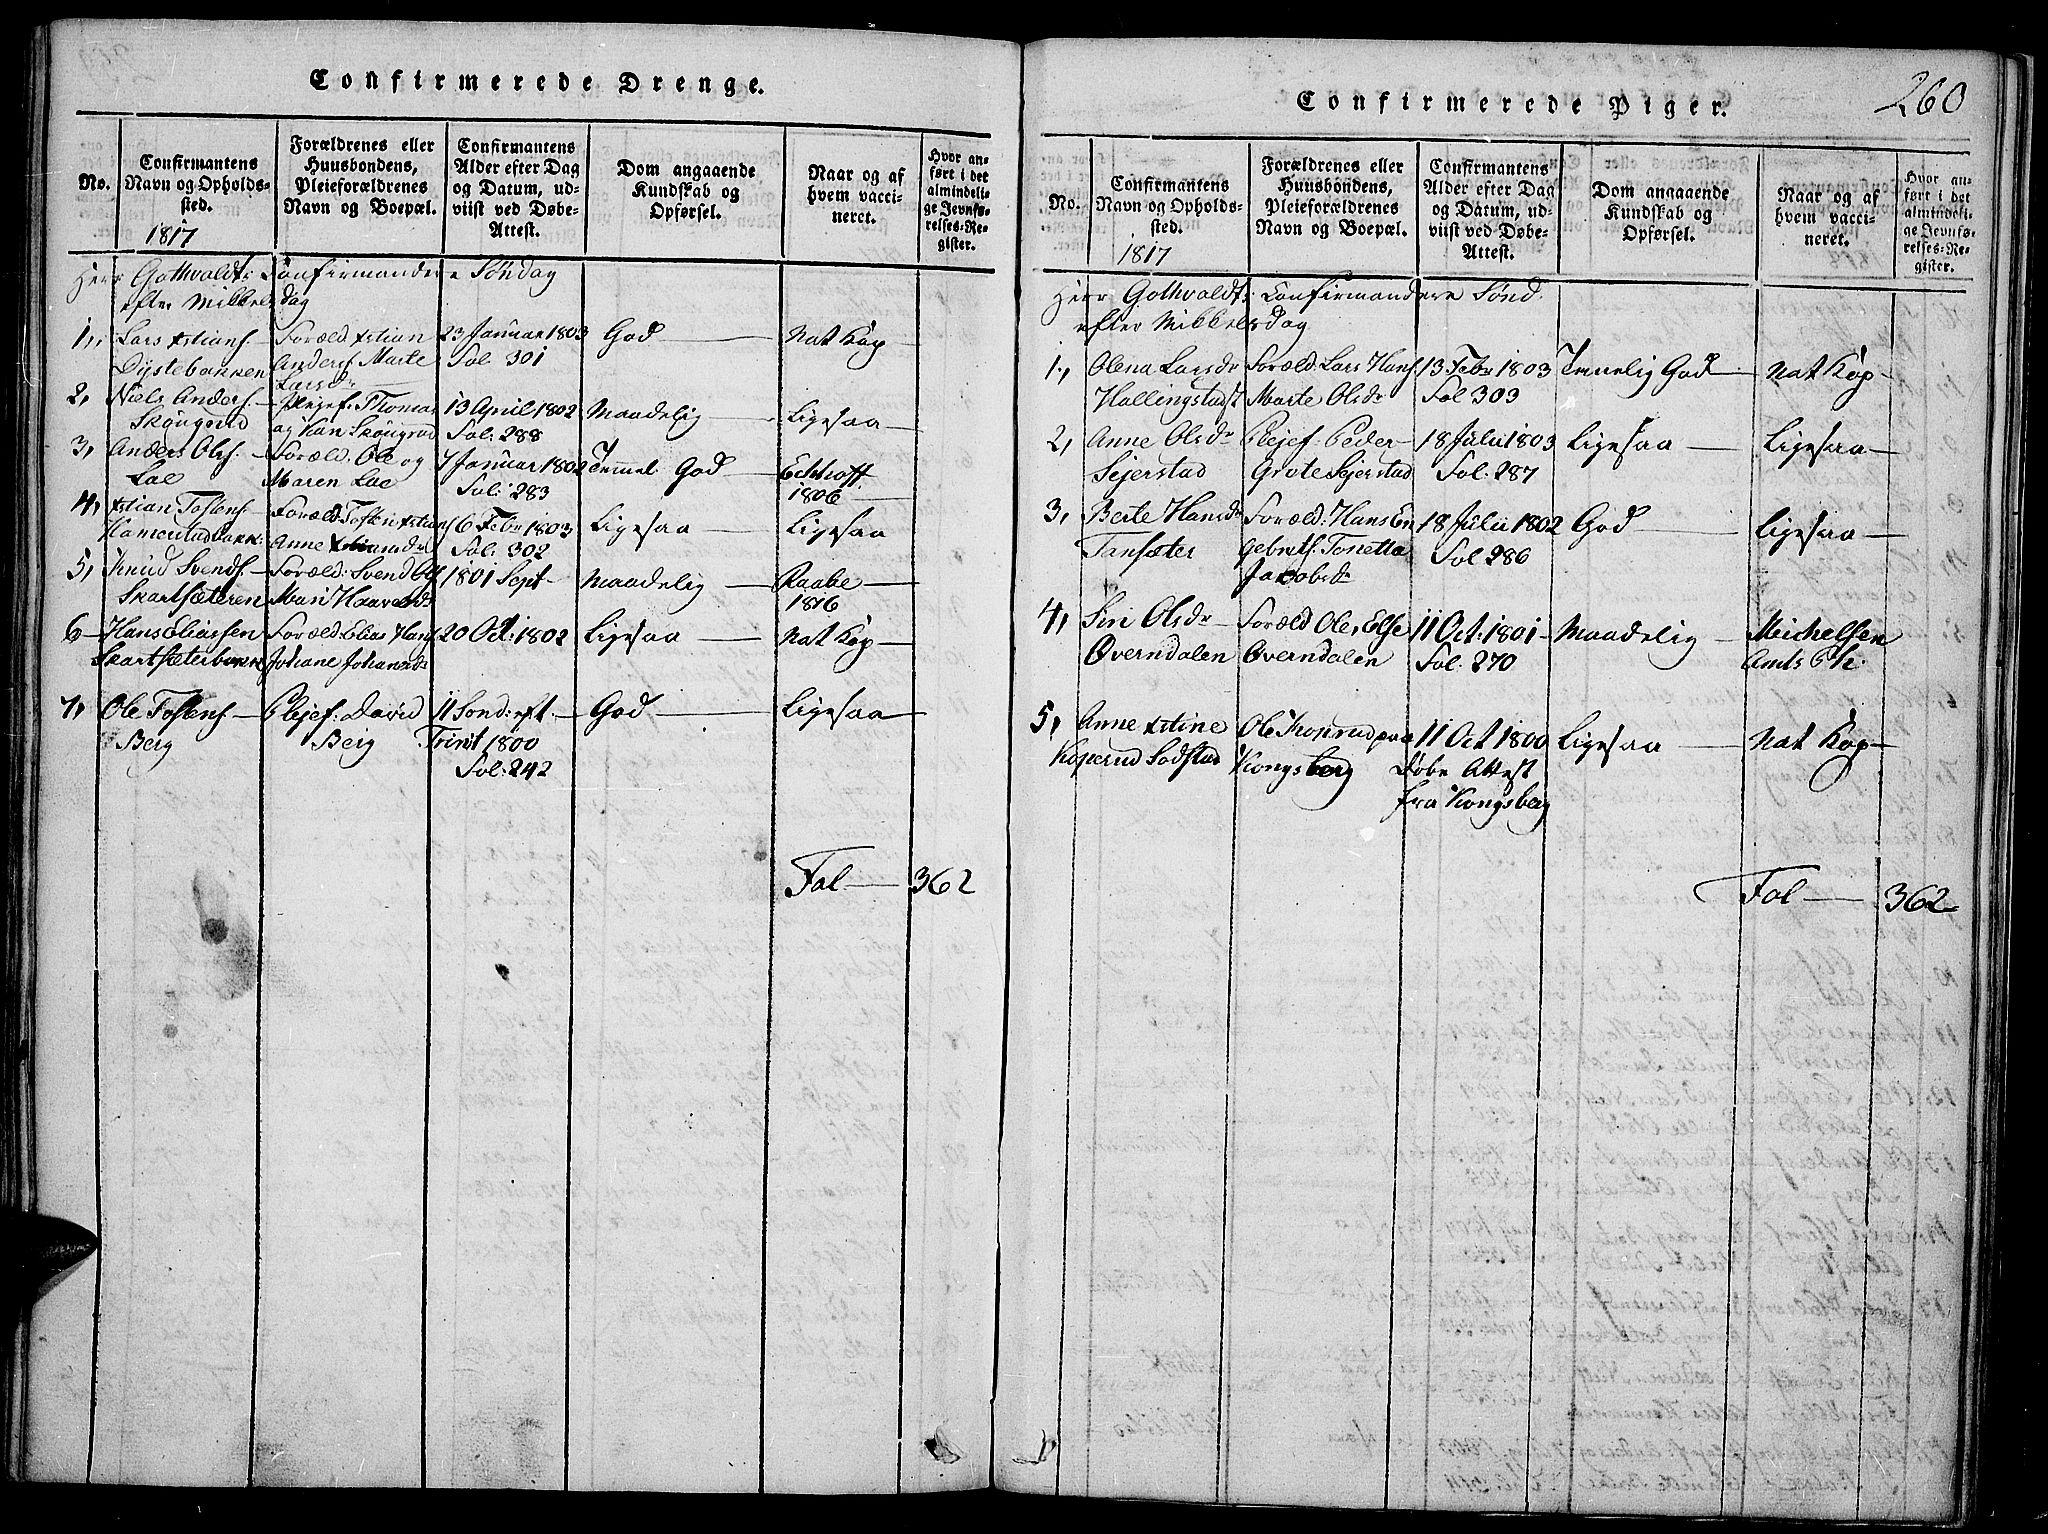 Confirmerede Drenge.
No.
Confirmantens
Navn og Opholds-
sted.
1817
Forældrenes eller
Huusbondens,
Pleieforældrenes
Navn og Boepæl.
Confirmantens
Alder efter Dag
og Datum, ud-
viist ved Døbe-
Attest.
Dom angaaende
Kundskab og
Opførsel.
Naar og af
hvem vacci-
neret.
Hvor an-
ført i det
almindeli-
ge Jevnfø-
relses-Re-
gister.
Herr Gothvaldts Confirmandere Søndag
efter Mikkelsdag
1,
Lars xstians
Dystebakken
Foræld xstian
Anders. Marte
Larsdr
23 Januar 1803
Fol 301
God
Nat Kop
2,
Niels Anders.
Skougrud
Plejef. Thomas
og Kari Skougrud
13 April 1802
Fol: 288
Maadelig
Ligesaa
3,
Anders Ols.
Lae
Foræld: Ole og
Maren Lae
7 Januar 1802
Fol: 283
Temmel God
Eckhoff
1806
4,
xstian Tostens
Foræld Tosten xstians
Anne
6 Febr 1803
Fol: 302
Ligesaa
Ligesaa
5,
Knud Svends.
Skartsæteren
Foræld: Svend
Mari Haavelsdr
1801 Sept
Maadelig
Raabe
1816
6
Hans Eliassen
Skartsæterbakken
Foræld: Elias Hans
Johane Johansdr
20 Oct: 1802
Ligesaa
Nat Kop
7,
Ole Tostens
Berg
Plejef: David
Berg
11 Sond: eft.
Trinit 1800
Fol: 242
God
Ligesaa
Fol 362
260
Confirmerede Piger.
No.
Confirmantens
Navn og Opholds-
sted.
1817
Forældrenes eller
Huusbondens,
Pleieforældrenes
Navn og Boepæl.
Confirmantens
Alder efter Dag
og Datum, ud-
viist ved Døbe-
Attest.
Dom angaaende
Kundskab og
Opførsel.
Naar og af
hvem vacci-
neret.
Hvor an-
ført i det
almindeli-
ge Jevnfø-
relses-Re-
gister.
Herr Gothvaldts Confirmandere Sønd.
efter Mikkelsdag
1,
Olena Larsdr
Hallingstad
Foræld: Lars Hans.
Marte Olsdr
13 Febr 1803
Fol 303
Temelig God
Nat Kop
2,
Anne Olsdr
Sejerstad
Plejef: Peder
Grote Sejerstad
18 Julii 1803
Fol: 287
Ligesaa
Ligesaa
3,
Berte Hansdr
Tansæter
Foræld: Hans En
Gebrets. Tonetta
Jacobsdr
18 Julii 1802
Fol 286
God
Ligesaa
4,
Siri Olsdr
Overndalen
Foræld Ole, Else
Overndalen
11 Oct: 1801
Fol: 270
Maadelig
Michelsen
Amts Ch.
5,
Anne xstine
Koperud Sodstad
Ole Konrud paa
Kongsberg
11 Oct 1800
Døbe Attest
fra Kongsberg
Ligesaa
Nat Kop
Fol 362